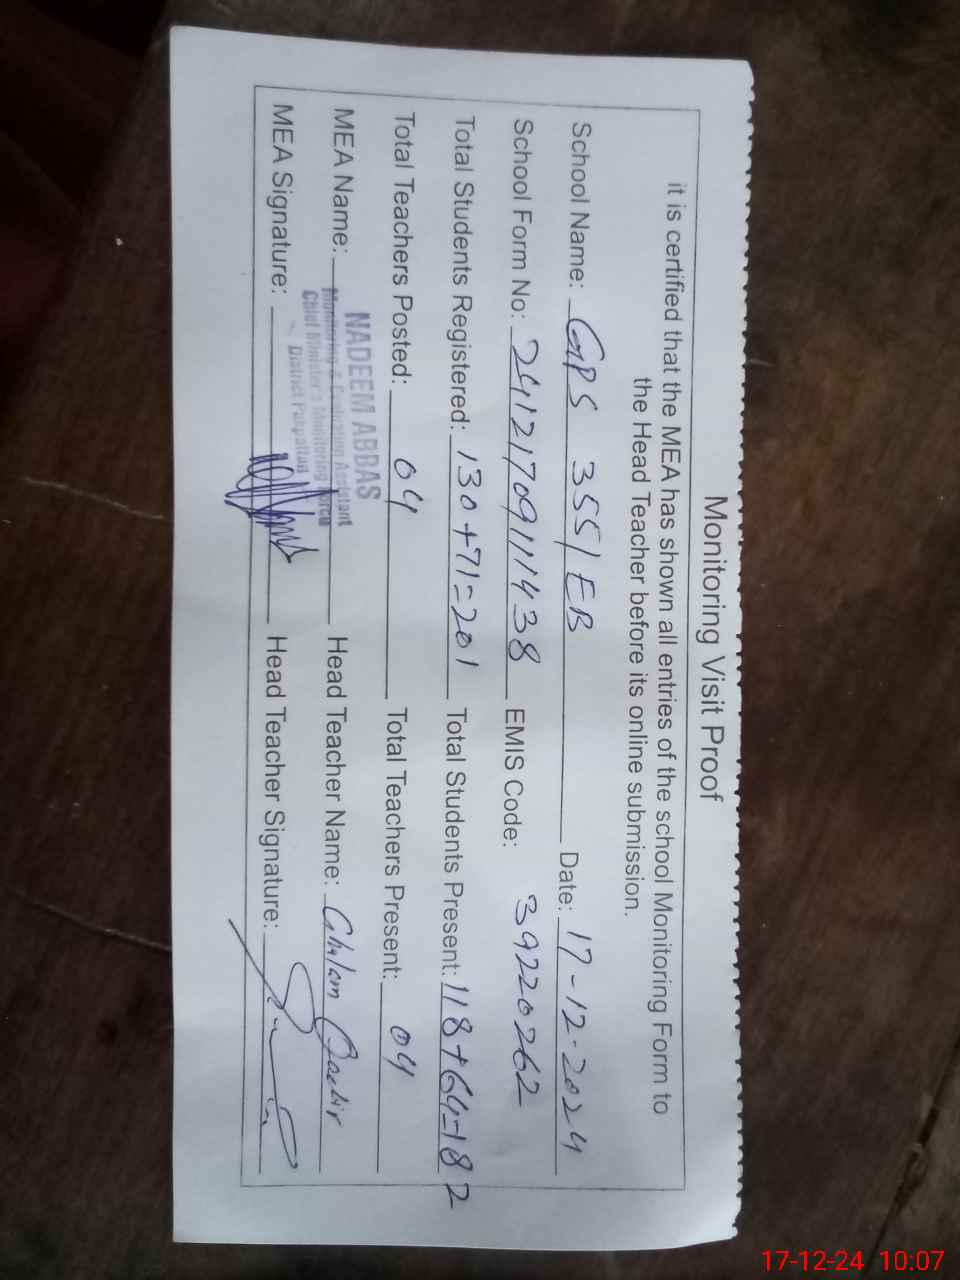 Monitoring Visit Proof
it is certified that the MEA has shown all entries of the school Monitoring Form to
the Head Teacher before its online submission.
School Name: GPS 355/EB Date: 17-12-2024
School Form No: 24121709111438 EMIS Code: 39220262
Total Students Registered: 130+71=201 Total Students Present: 118+64=182
Total Teachers Posted: 04 Total Teachers Present: 04
MEA Name: NADEEM ABBAS Head Teacher Name: Ghulam Qadir
Monitoring & Evaluation Assistant
Chief Minister's Monitoring Force
District Pakpattan
MEA Signature: Head Teacher Signature:
17-12-24 10:07